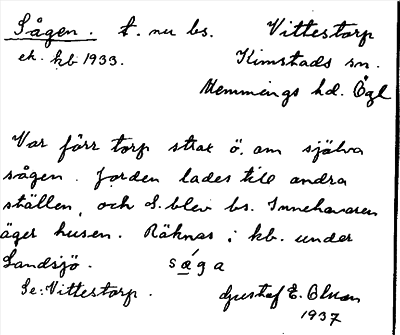 Sågen. t. nu bs. Vittestorp
ek. kb 1933. Kimstads sn.
Memmings hd. Ögl
Var förr torp strax ö. om själva
sågen. Jorden lades till andra
ställen, och S. blev bs. Innehavaren
äger husen. Räknas i kb. under
Landsjö. sága
Se: Vittestorp. Gustaf E. Olson
1937